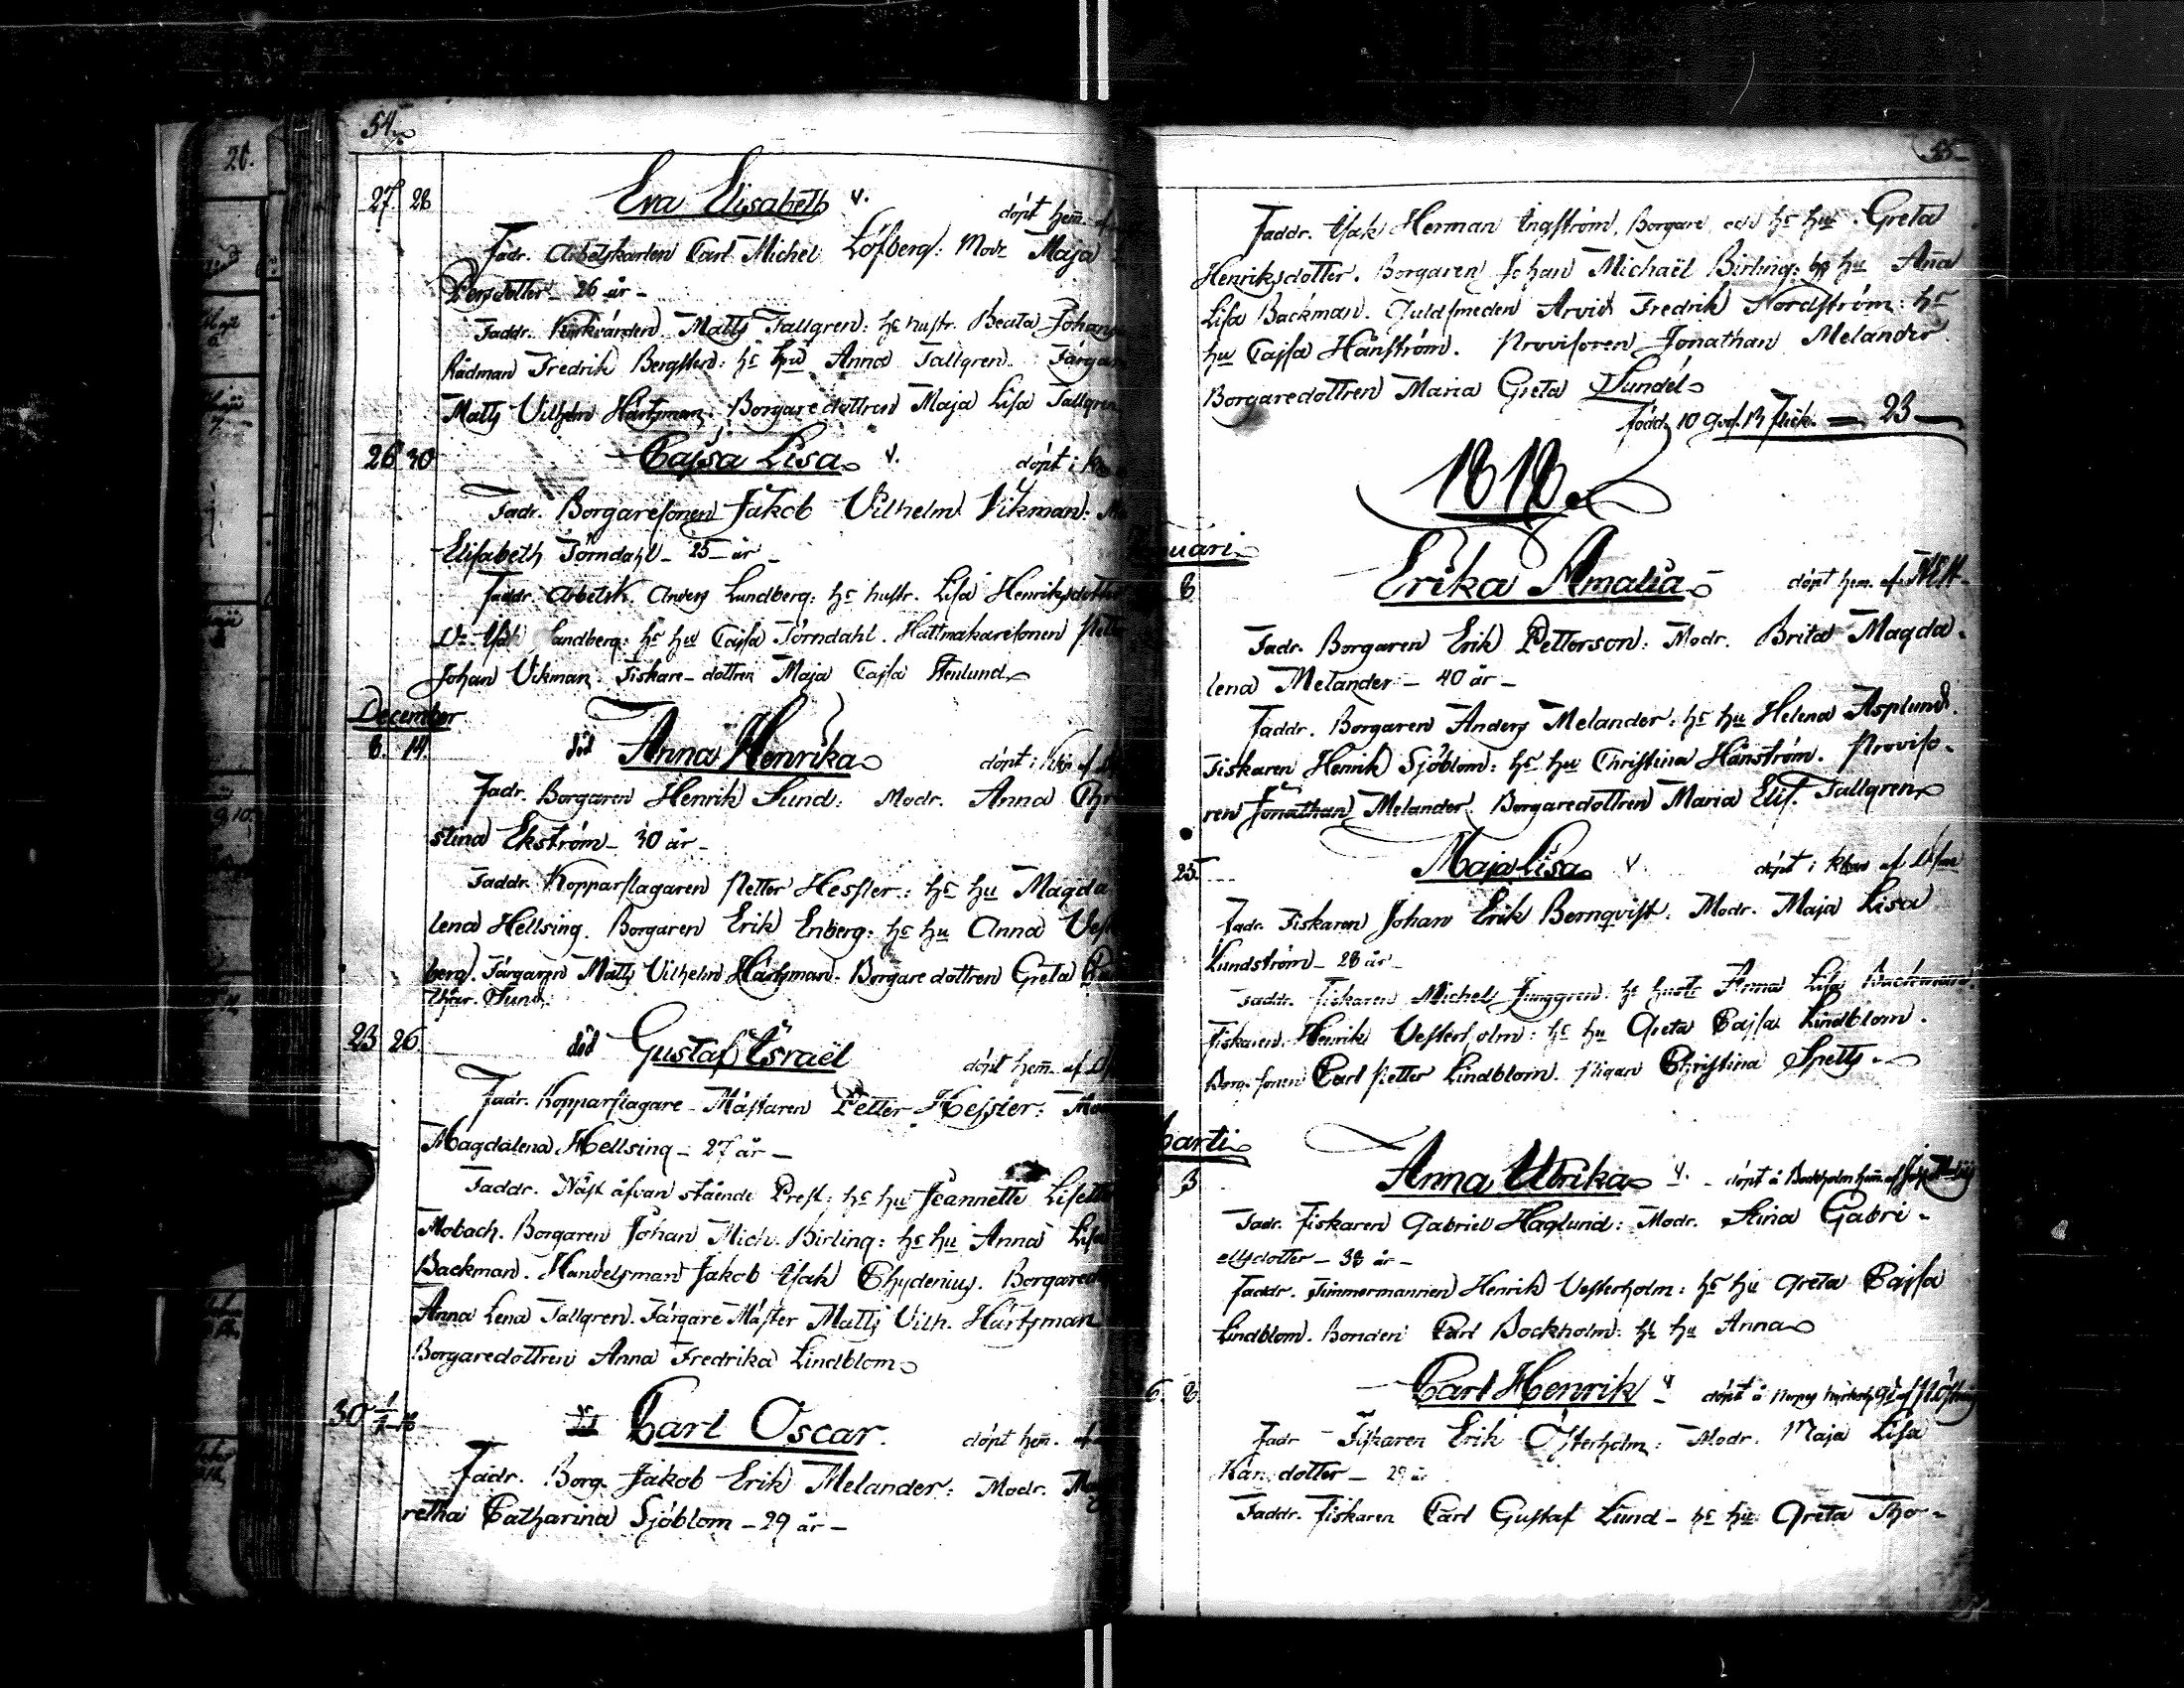 54.
27. 28
Eva Elisabeth v.
döpt hem̄. af
Fadr. Arbetskarlen Carl Michel Löfberg: Modr Maja
Persdotter - 26 år -
Faddr. Kyrkvärden Matts Tallgren: hs hustr. Beata Johans
Rådman Fredrik Bergsten: hs hu Anna Tallgren. Färgare
Matts Vilhelm Hartsman. Borgaredottren Maja Lisa Tallgren
26 30
Cajsa Lisa v.
döpt i
Fadr. Borgaresonen Jakob Vilhelm Vikman:
Elisabeth Törndahl - 25 år -
Faddr. Arbetsk. Anders Lundberg: hs hustr. Lisa Henriksdotter
Do Isak Sandberg: hs hu Cajsa Törndahl. Hattmakaresonen Petter
Johan Vikman. Fiskare-dottren Maja Cajsa Stenlund
December
6. 14.
död Anna Henrika
döpt i
Fadr. Borgaren Henrik Sund: Modr. Anna Chri
stina Ekström - 30 år -
Faddr. Kopparslagaren Petter Hessler: hs hu Magda
lena Hellsing. Borgaren Erik Enberg: hs hu Anna Vest
berg. Färgaren Matts Vilhelm Hartsman. Borgaredottren Greta
Sund.
23 26
död Gustaf Israël
döpt hem̄. af
Fadr. Kopparslagare-Mästaren Petter Hessler:
Magdalena Hellsing - 27 år -
Faddr. Näst åfvan stående Prest: hs hu Jeannette Lisette
Mobach. Borgaren Johan Mich. Birling: hs hu Anna Lisa
Backman. Handelsman Jakob Isak Chydenius. Borgared
Anna Lena Tallgren. Färgare Mäster Matts Vilh. Hartsman
Borgaredottren Anna Fredrika Lindblom
30
död Carl Oscar.
döpt hem̄. af
Fadr. Borg. Jakob Erik Melander: Modr. Mar
retha Catharina Sjöblom - 29 år -
55
Faddr. Isak Herman Engström, Borgare och hs hu. Greta
Henriksdotter. Borgaren Johan Michaël Birling: hs hu Añna
Lisa Backman. Guldsmeden Arvid Fredrik Nordström: hs
hu Cajsa Hanström. Provisoren Jonathan Melander.
Borgaredottren Maria Greta Sundél
Född. 10 Gos. 13 Flick. = 23
1818.
uari
6
Erika Amalia
döpt hem. af
Fadr. Borgaren Erik Petterson: Modr. Brita Magda-
lena Melander - 40 år -
Faddr. Borgaren Anders Melander: hs hu Helena Asplund.
Fiskaren Henrik Sjöblom: hs hu Christina Hanström. Proviso-
ren Jonathan Melander. Borgaredottren Maria Elis. Tallgren
25.
Maja Lisa v.
döpt i kkan af
Fadr. Fiskaren Johan Erik Bernqvist. Modr. Maja Lisa
Lundström - 28 år -
Faddr. Fiskaren Michel Junggren: hs hustr Anna Lisa Backman.
Fiskaren Henrik Vesterholm: hs hu Greta Cajsa Lindblom.
Borg. sonen Carl Petter Lindblom. Pigan Christina Spetts.
arti
3
Anna Ulrika v.
döpt å Bockholm hem̄. af
Fadr. Fiskaren Gabriel Haglund: Modr. Stina Gabri-
elsdotter - 38 år -
Faddr. Timmermannen Henrik Vesterholm: hs hu Greta Cajsa
Lindblom. Bonden Carl Bockholm: hs hu Anna
6. 8.
Carl Henrik v
döpt å
Fadr Fiskaren Erik Österholm: Modr. Maja Lisa
Karlsdotter - 29 år
Faddr. Fiskaren Carl Gustaf Lund - hs hu Greta Tho-